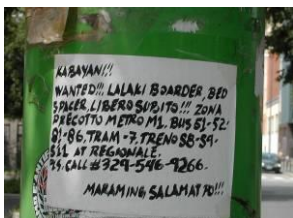 KABAYAN!!!
WANTED!!! LALAKI BOARDER, BED
SPACER, LIBERO SUBITO!!! ZONA
PRECOTTO METRO M1. BUS 51-52-
81-86, TRAM-7, TRENO S8-S9-
S11 AT REGIONALE.
CALL #329-546-9266.
MARAMING SALAMAT PO!!!